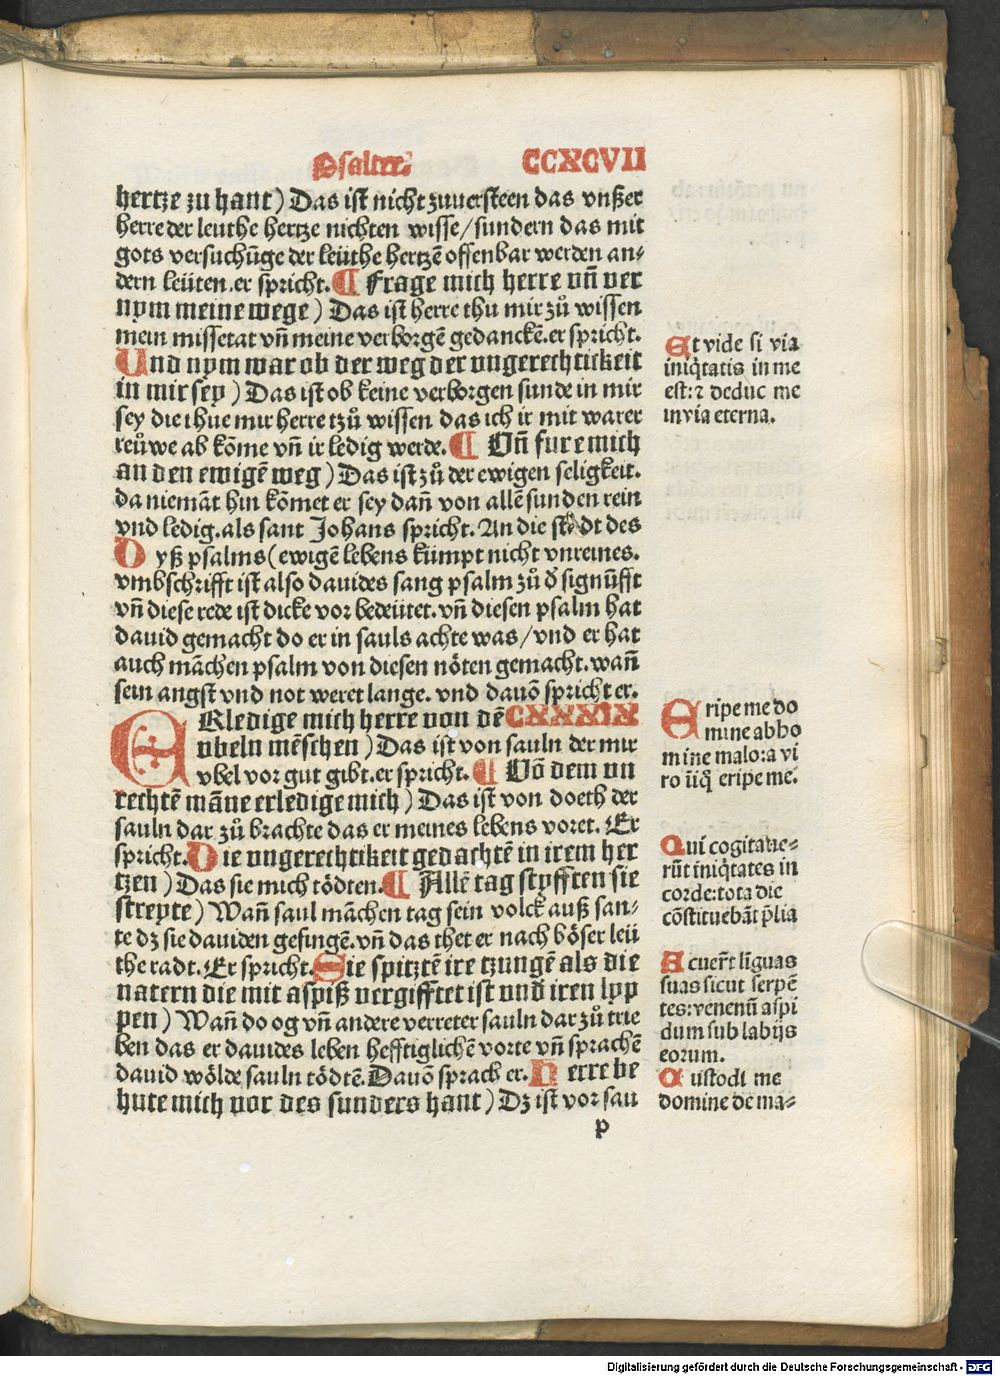 Psalter.
CCXCVII
hertze zu hant) Das ist nicht zuuersteen das vnßer
herre der leuthe hertze nichten wisse/sundern das mit
gots versuchūge der leüthe hertzē offenbar werden an-
dern leüten. er spricht. ¶ Frage mich herre vn̄ ver
nym meine wege) Das ist herre thu mir zů wissen
mein missetat vn̄ meine verborgē gedanckē. er spricht.
Und nym war ob der weg der vngerechtikeit
in mir sey) Das ist ob keine verborgen sunde in mir
sey die thue mir herre tzů wissen das ich ir mit warer
reůwe ab kōme vn̄ ir ledig werde. ¶ Vn̄ fure mich
an den ewigē weg) Das ist zů der ewigen seligkeit.
da niemāt hin kōmet er sey dan̄ von allē sunden rein
vnd ledig. als sant Johans spricht. An die stadt des
Dyß psalms (ewigē lebens kümpt nicht vnreines.
vmbschrifft ist also dauides sang psalm zů d̓ signūfft
vn̄ diese rede ist dicke vor bedeütet. vn̄ diesen psalm hat
dauid gemacht do er in sauls achte was/vnd er hat
auch māchen psalm von diesen nöten gemacht. wan̄
sein angst vnd not weret lange. vnd dauō spricht er.
ERledige mich herre von dē CXXXIX
vbeln mēschen) Das ist von sauln der mir
vbel vor gut gibt. er spricht. ¶ Vō dem vn
rechtē māne erledige mich) Das ist von doeth der
sauln dar zů brachte das er meines lebens voret. Er
spricht. Die vngerechtikeit gedachtē in irem her
tzen) Das sie mich tödten. ¶ Allē tag styfften sie
streyte) Wan̄ saul māchen tag sein volck auß san-
te dz sie dauiden gefingē. vn̄ das thet er nach böser leü
the radt. Er spricht. Sie spitztē ire tzungē als die
natern die mit aspiß vergifftet ist vnd̓ iren lyp
pen) Wan̄ do og vn̄ andere verreter sauln dar zů trie
ben das er dauides leben hefftiglichē vorte vn̄ sprachē
dauid wölde sauln tödtē. Dauō sprach er. Herre be
hute mich vor des sunders hant) Dz ist vor sau
p
Et vide si via
iniq̄tatis in me
est: ⁊ deduc me
in via eterna.
Eripe me do
mine ab ho
mine malo: a vi
ro īiq̄ eripe me.
Qui cogitaue-
rūt iniq̄tates in
corde: tota die
cōstituebāt p̄lia
Acuer̄t līguas
suas sicut serpē
tes: venenū aspi
dum sub labijs
eorum.
Custodi me
domine de ma-
Digitalisierung gefördert durch die Deutsche Forschungsgemeinschaft - DFG